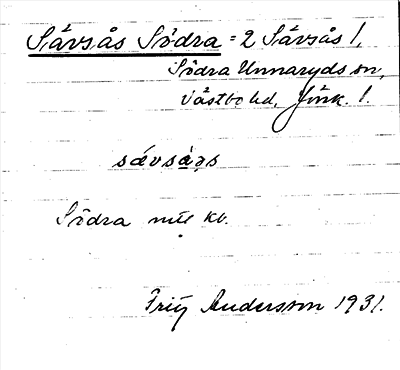 Sävsås Södra = 2 Sävsås 1,
Södra Unnaryds sn,
Västbo hd, Jönk. l.
sǽvsås
Södra mtl kv.
Fritz Andersson 1931.